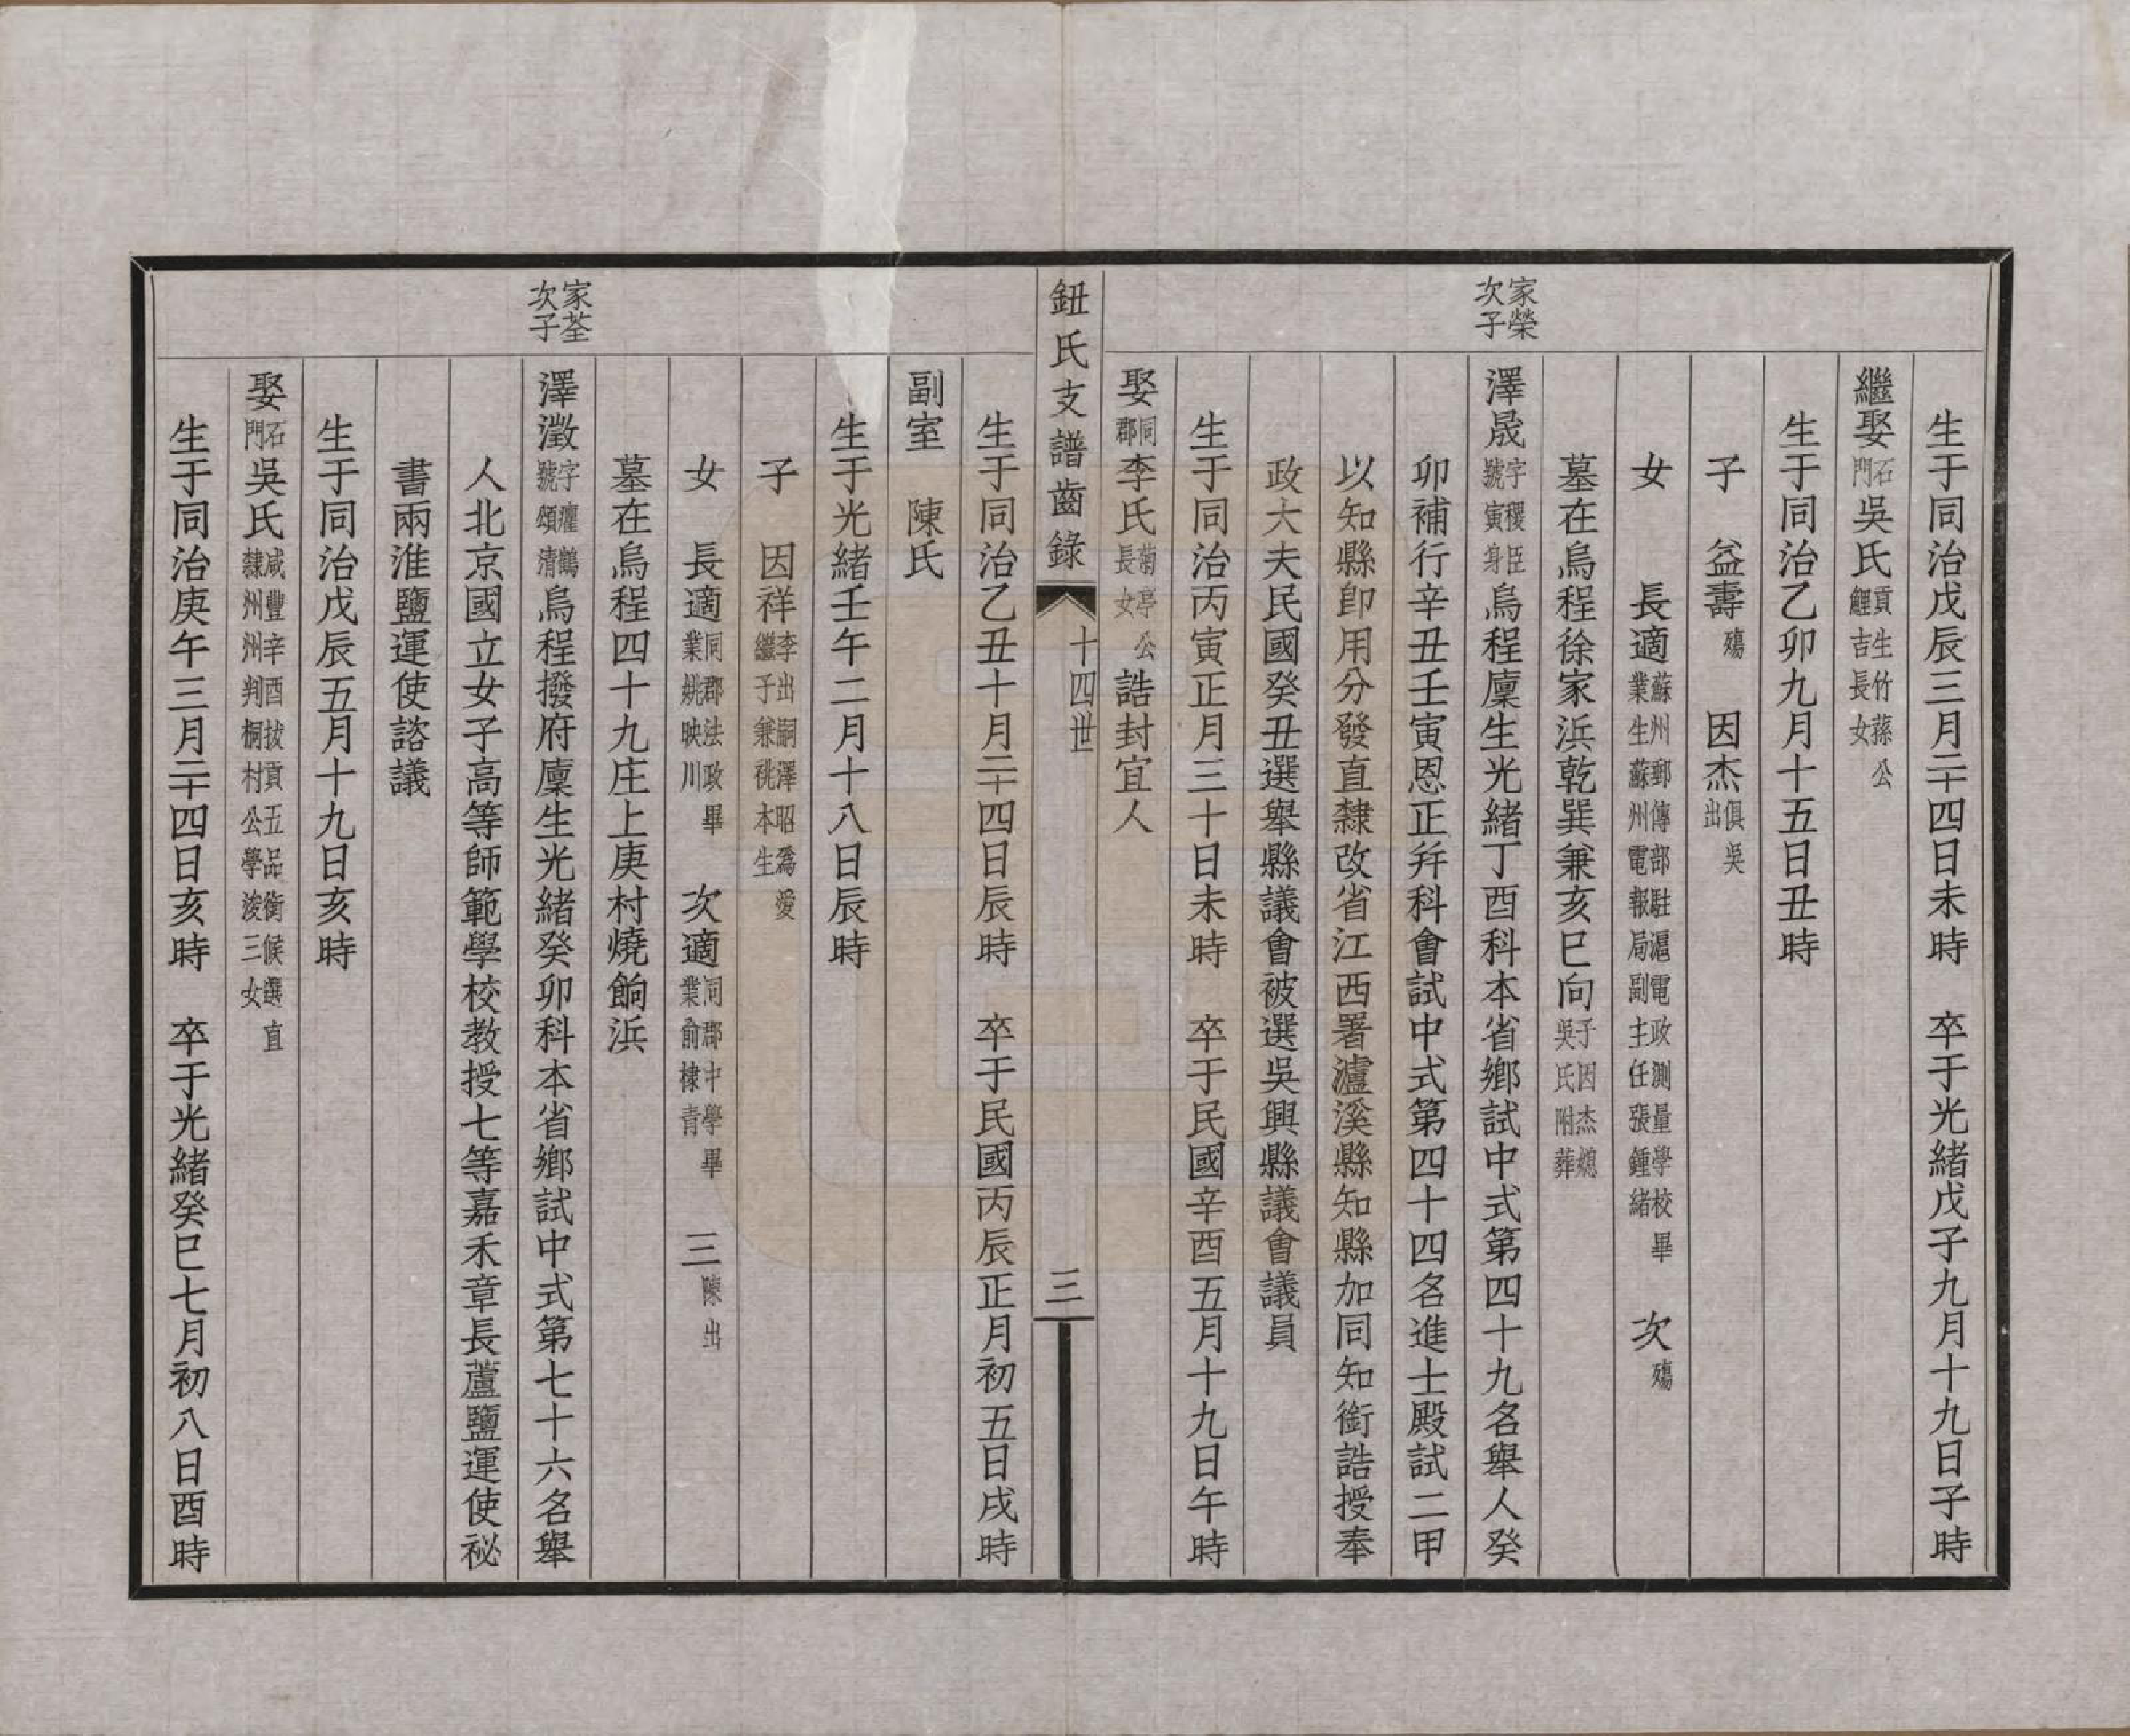 生于同治戊辰三月二十四日未時　卒于光緒戊子九月十九日子時
繼娶石門吳氏貢生竹蓀公鯉吉長女
生于同治乙卯九月十五日丑時
子　益壽殤　因杰俱吳出
女　長適蘇州郵傳部駐滬電政測量學校畢業生蘇州電報局副主任張鍾緒　次殤
墓在烏程徐家浜乾巽兼亥巳向子因杰媳吳氏附葬
家榮次子
澤晟字稷臣號寅身烏程廩生光緒丁酉科本省鄉試中式第四十九名舉人癸
卯補行辛丑壬寅恩正幷科會試中式第四十四名進士殿試二甲
以知縣卽用分發直隸改省江西署瀘溪縣知縣加同知銜誥授奉
政大夫民國癸丑選舉縣議會被選吳興縣議會議員
生于同治丙寅正月三十日未時　卒于民國辛酉五月十九日午時
娶同郡李氏菊亭公長女誥封宜人
鈕氏支譜齒錄　十四世　三
生于同治乙丑十月二十四日辰時　卒于民國丙辰正月初五日戌時
副室　陳氏
生于光緒壬午二月十八日辰時
子　因祥李出嗣澤昭爲愛繼子兼祧本生
女　長適同郡法政畢業姚映川　次適同郡中學畢業俞棣青　三陳出
墓在烏程四十九庄上庚村燒餉浜
家荃次子
澤瀓字瀍鶴號頌清烏程撥府廩生光緒癸卯科本省鄉試中式第七十六名舉
人北京國立女子高等師範學校教授七等嘉禾章長蘆鹽運使祕
書兩淮鹽運使諮議
生于同治戊辰五月十九日亥時
娶石門吳氏咸豐辛酉拔貢五品銜候選直隸州州判桐村公學浚三女
生于同治庚午三月二十四日亥時　卒于光緒癸巳七月初八日酉時